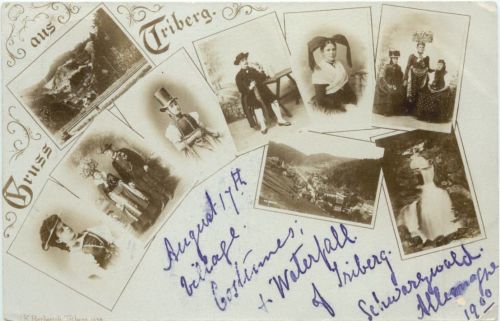 Gruss
aus
Triberg.
August 17th
Village.
Costumes;
+ Waterfall
of Triberg.
Schwarzwald.
Allemagne
1900